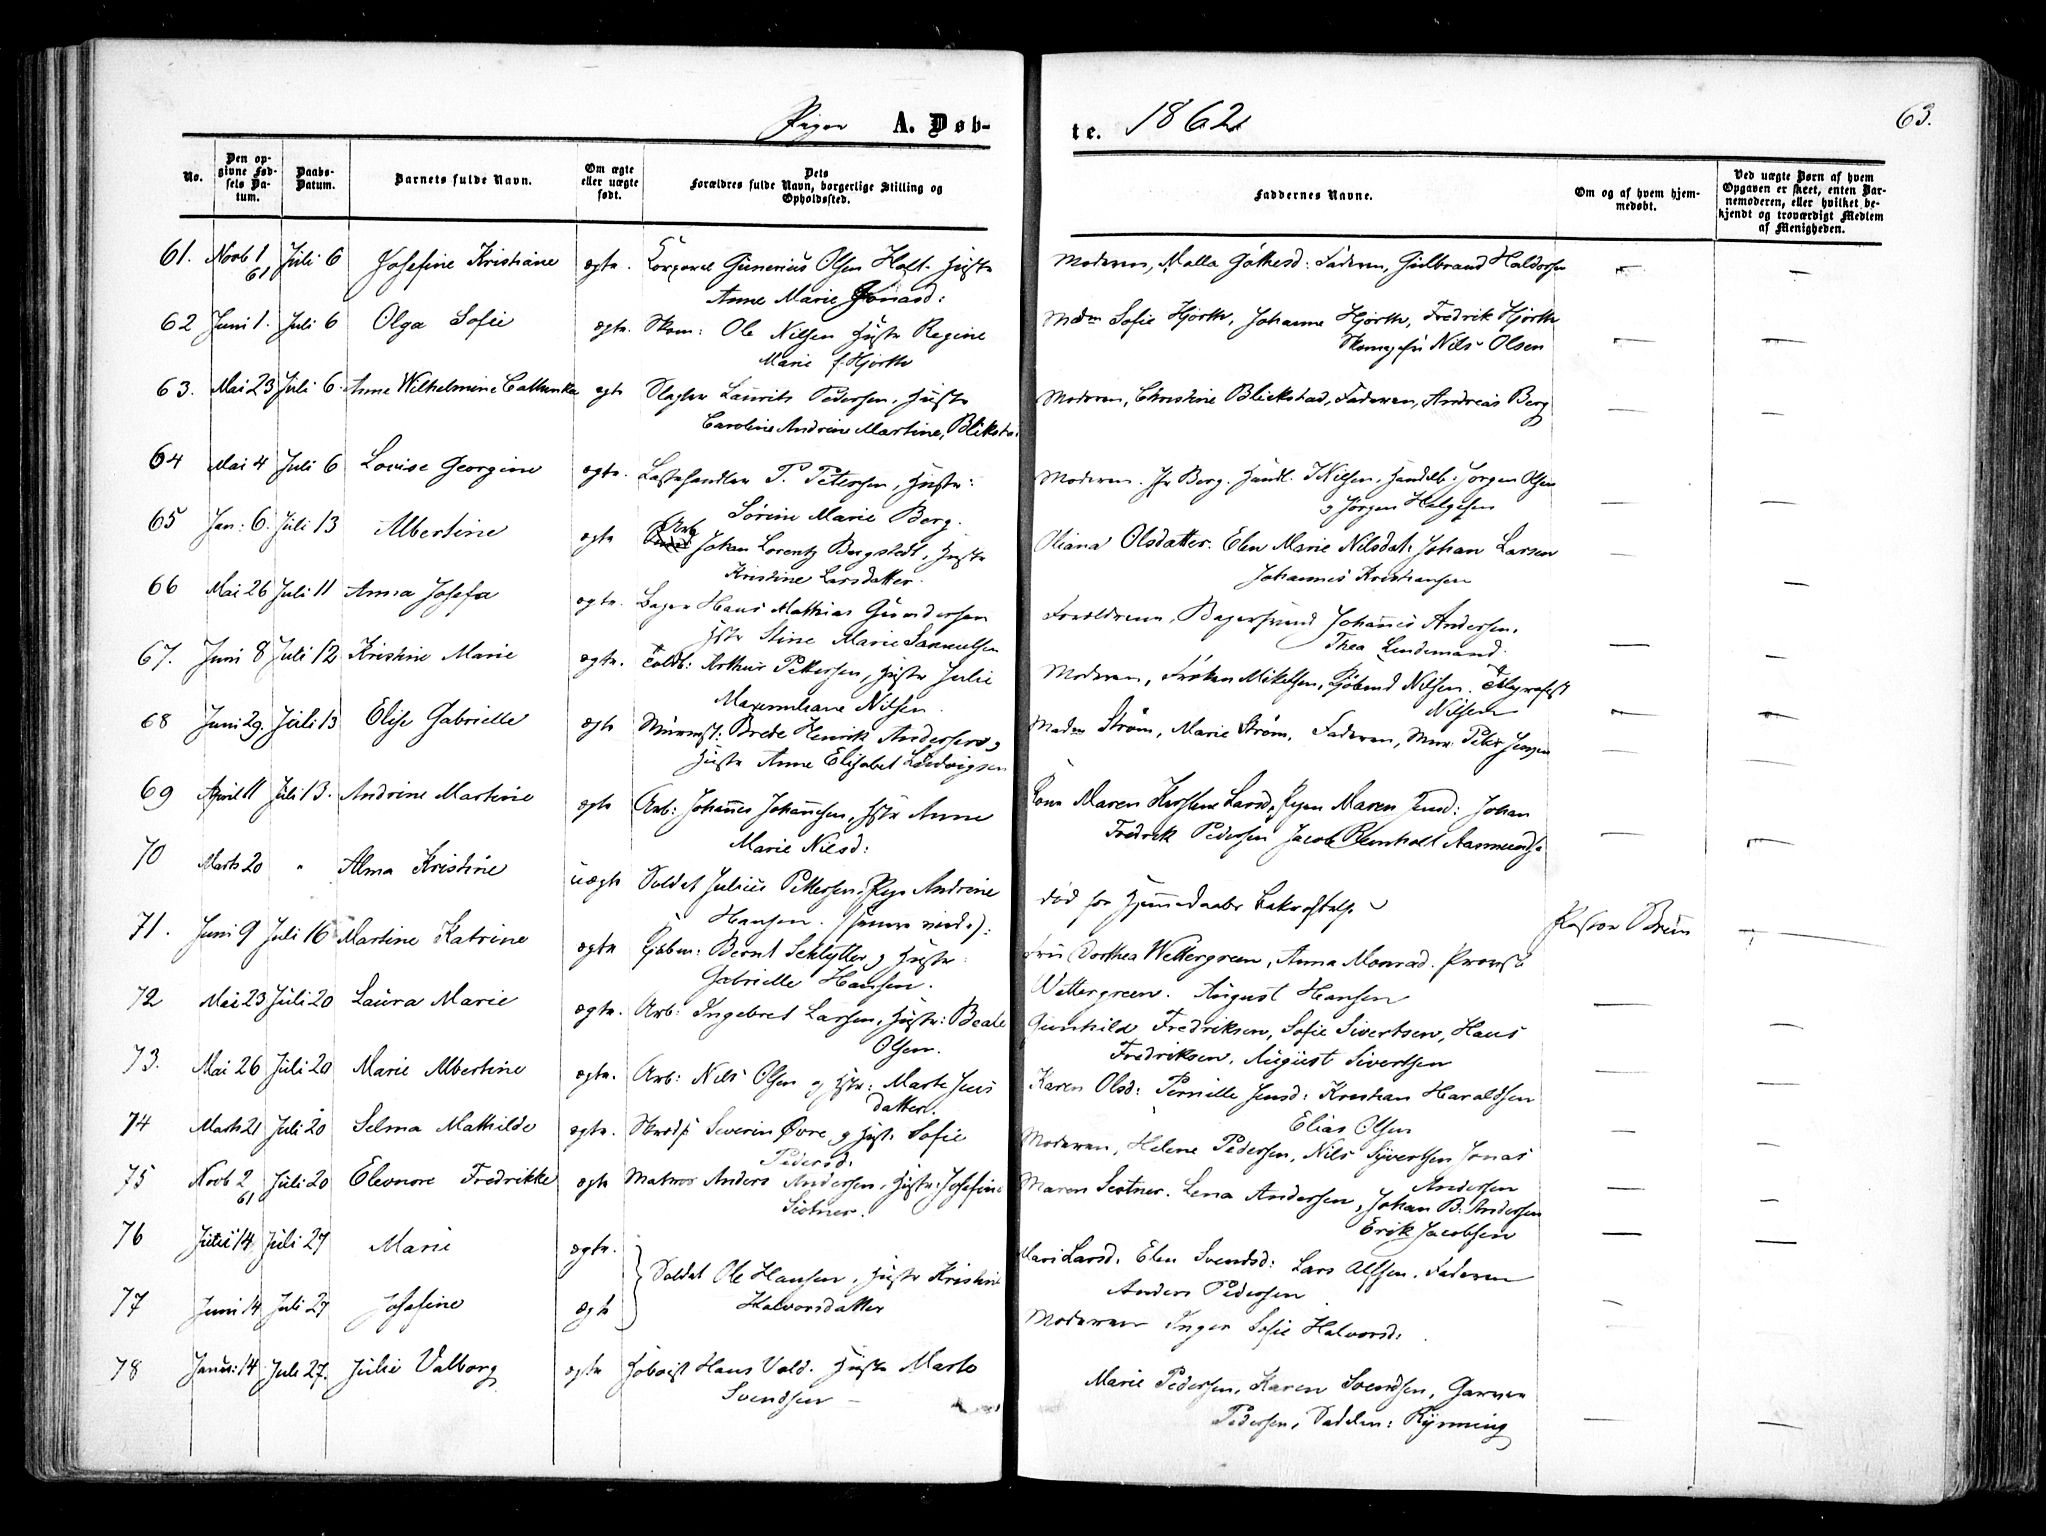 Piger A. Døb-
te. 1862
63.
No.
Den op-
givne Fød-
sels Da-
tum.
Daabs-
Datum.
Barnets fulde Navn.
Om ægte
eller uægte
født.
Dets
Forældres fulde Navn, borgerlige Stilling og
Opholdssted.
Faddernes Navne.
Om og af hvem hjem-
medøbt.
Ved uægte Børn af hvem
Opgaven er skeet, enten Bar-
nemoderen, eller hvilket be-
kjendt og troværdigt Medlem
af Menigheden.
61. Novb 1 61 Juli 6 Josefine Kristiane ægte. Corporal Gunerius Olsen Holt. Hustr Moderen, Malla Faderen, Gulbrand Haldorsen
Anne Marie Jonasd:
62 Juni 1. Juli 6 Olga Sofie ægte. Skom: Ole Nilsen Hustr Regine Sofie Hjorth, Johanne Hjorth, Fredrik Hjorth
Marie f. Hjorth Nils Olsen
63. Mai 23 Juli 6. Anne Wilhelmine Cathinka ægte Slagter Laurits Pedersen, Hustr Moderen, Christine Blickstad, Faderen, Andreas Berg
Caroline Andrine Martine, Bliksta
64 Mai 4 Juli 6 Lovise Georgine ægte. P. Petersen, Hustr: Moderen. Berg. Nilsen, Jørgen Olsen
Sørine Marie Berg. Jørgen Helgesen
65 Jan: 6. Juli 13 Albertine ægte Arb Johan Lorentz Bergstedt, Hustr Oliana Olsdatter. Elen Marie Nilsdat: Johan Larsen
Kristine Larsdatter. Johannes Kristiansen
66 Mai 26 Juli 11 Anna Josefa ægte. Bager Hans Mathias Gundersen Forældrene, Bagersvend Johannes Andersen,
Hstr Stine Marie Samuelsen Thea Lindemand.
67. Juni 8 Juli 12 Kristine Marie ægte. Toldb: Arthur Pettersen, Hustr Julie Moderen, Frøken Mikelsen, Kjøbmd Nilsen. Telegrafist
Maximiliane Nilsen. Nilsen
68 Juni 29. Juli 13 Elise Gabrielle ægte Murmst: Brede Henrik Andersen, Strøm, Marie Strøm, Faderen, Mur: Peter Jensen
Hustr Anne Elisabet Ludvigsen
69 April 11 Juli 13. Andrine Martine ægte Arb: Johannes Johannesen, Hstr Anne Kone Maren Kirstine Larsd, Pigen Maren Jensd: Johan
Marie Nilsd: Fredrik Pedersen Jacob Reinholt
70 Marts 20 " Alma Kristine uægte Soldat Julius Pettersen, Pige Andrine død før Hjemmedaabs Bekræftelse
Hansen.
71. Juni 9 Juli 16 Martine Katrine ægte Kjøbm: Bernt Schlytter og Hustr: Fru Dorthea Wettergreen, Anna Monrad. Provst
Gabrielle Hansen. Wettergreen. August Hansen
72 Mai 23 Juli 20 Laura Marie ægte. Arb: Ingebret Larsen, Hustr: Beate Gunhild Fredriksen, Sofie Sivertsen, Hans
Olsen. Fredriksen, August Sivertsen
73. Mai 26 Juli 20 Marie Albertine ægte. Arb: Nils Olsen og Hstr: Marte Jens Karen Olsd: Pernille Jensd: Kristian Haraldsen
datter. Elias Olsen
74 Marts 21 Juli 20 Selma Mathilde ægte. Severin Øvre og Hust. Sofie Moderen, Helene Pedersen, Nils Syvertsen Jonas
Pedersd: Andersen
75 Novb 2 61 Juli 20 Eleonore Fredrikke ægte Matros Anders Andersen. Hustr: Josefine Maren Lena Andersen, Johan B. Andersen
Erik Jacobsen
76 Juni 14 Juli 27 Marie ægte. Soldat Ole Hansen, Hustr Kristine Mari Larsd: Elen Svendsd: Lars Alfsen. Faderen
Halvorsdatter Anders Pedersen
77 Juni 14 Juli 27 Josefine ægte Moderen Inger Sofie Halvorsd:
78 14 Juli 27. Julie Valborg ægte Hans Vold. Hustr Marte Marie Pedersen, Karen Svendsen,
Svendsen Pedersen, Rynning